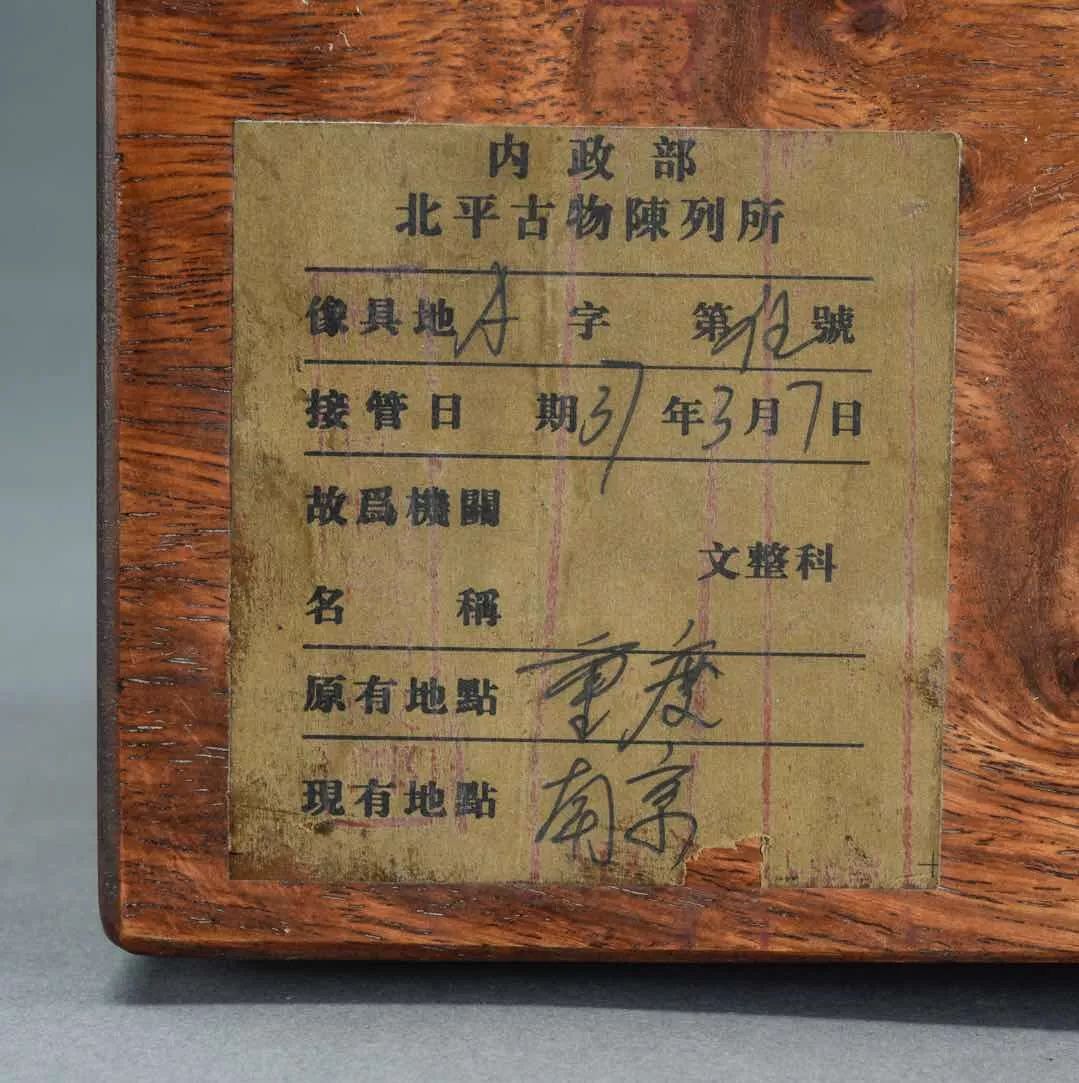 内政部
北平古物陳列所
傢具地 字 第 號
接管日期37年3月7日
故爲機關
文整科
名稱
原有地點 重慶
現有地點 南京